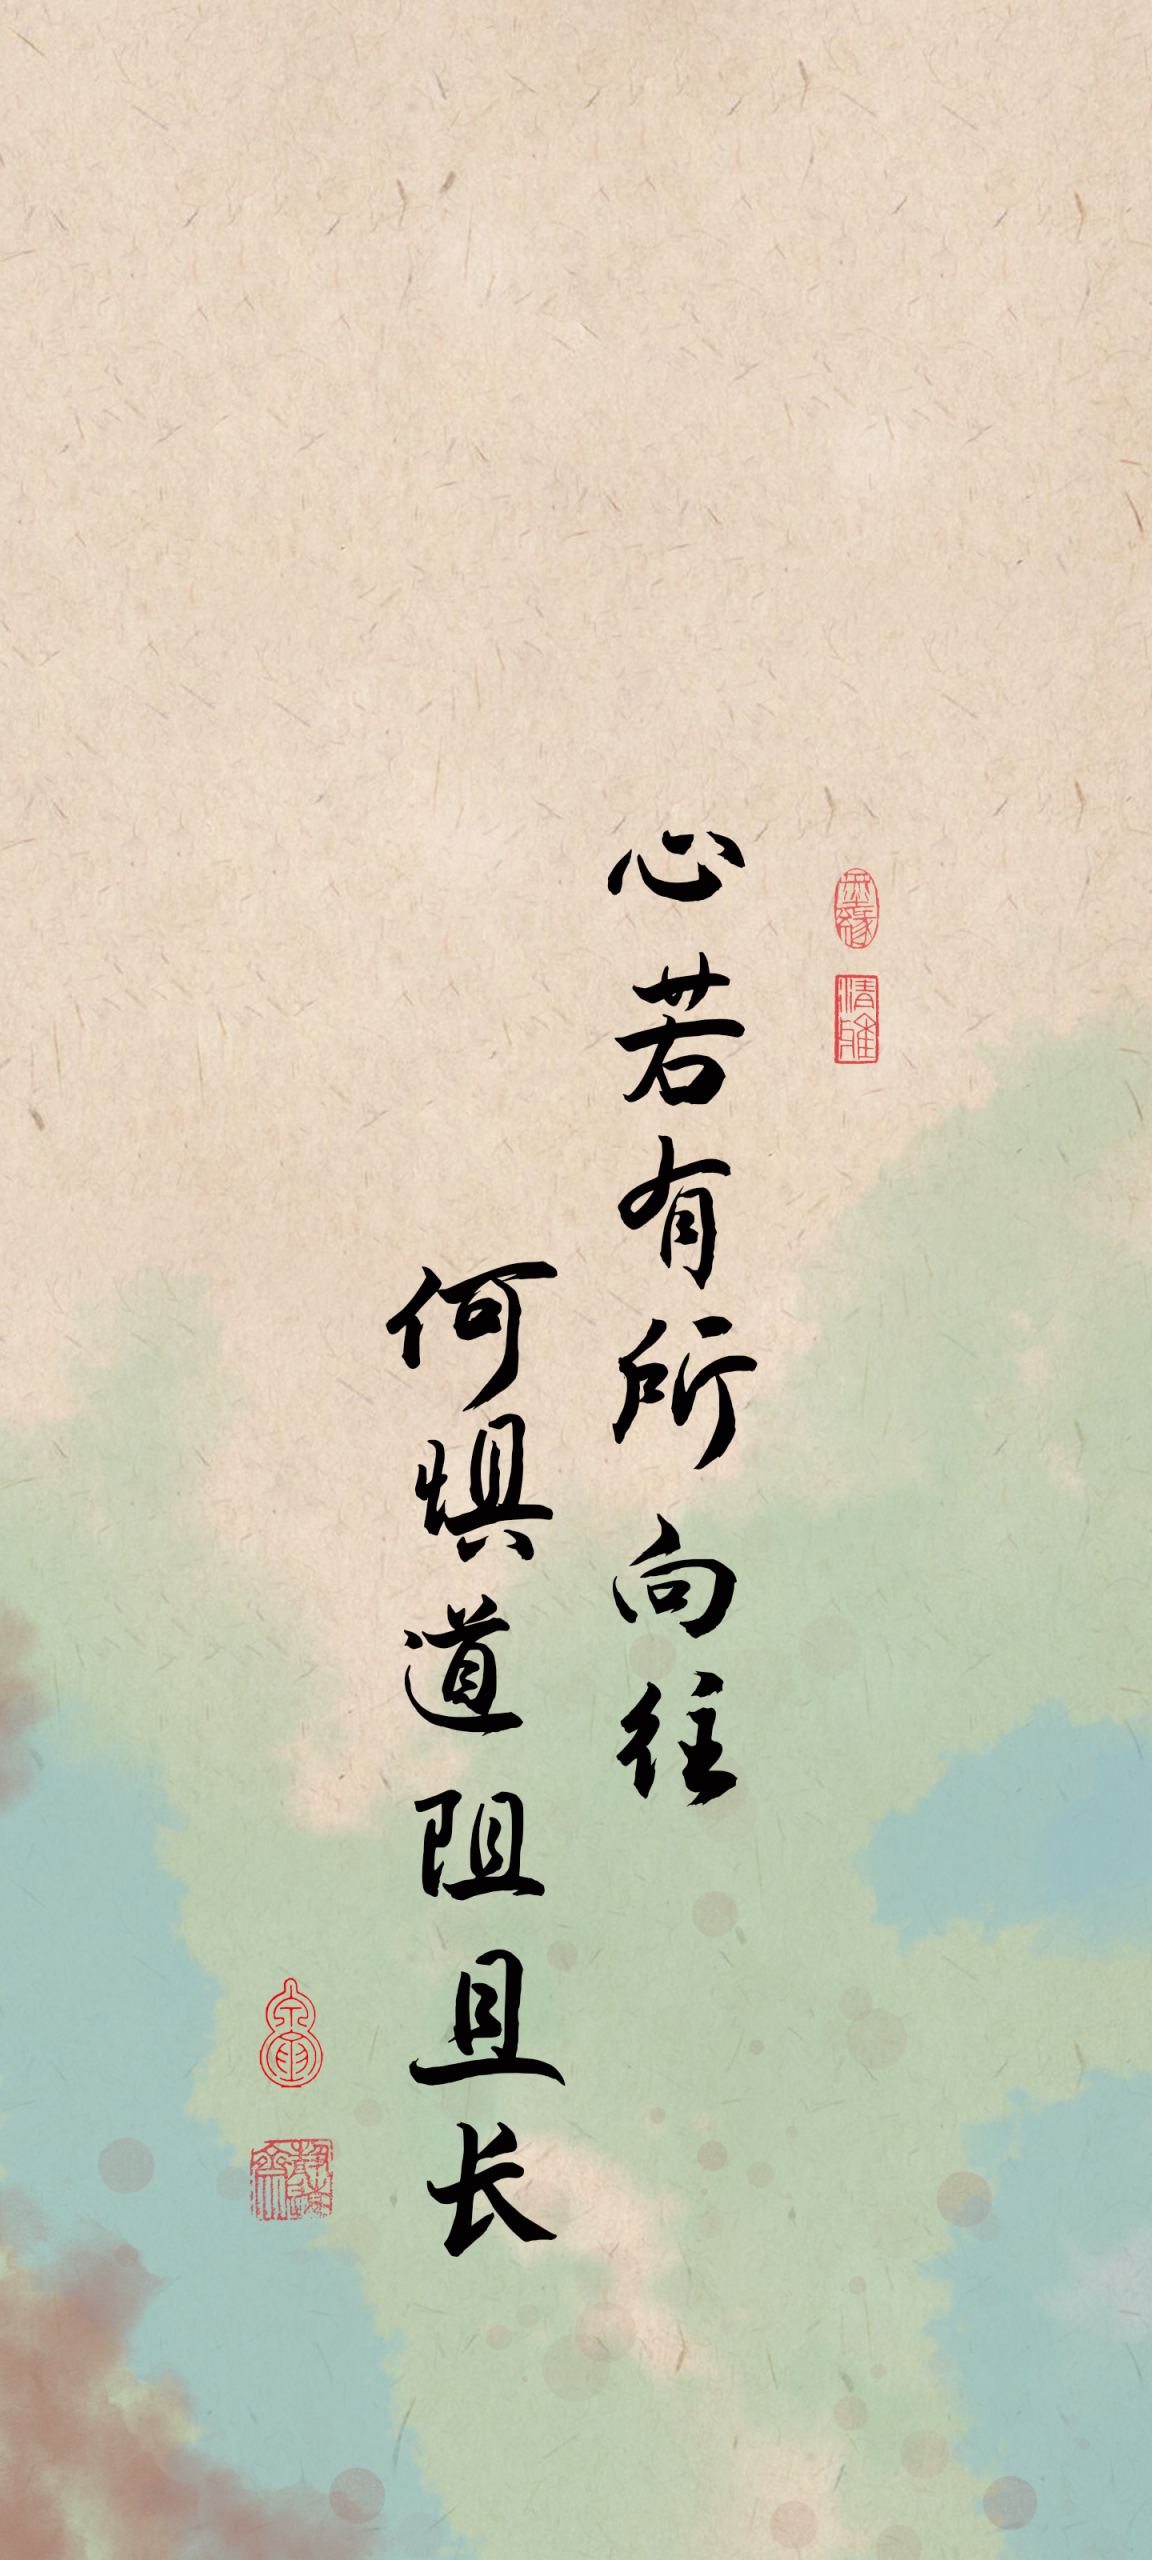 心若有所向往
何惧道阻且长
清雅